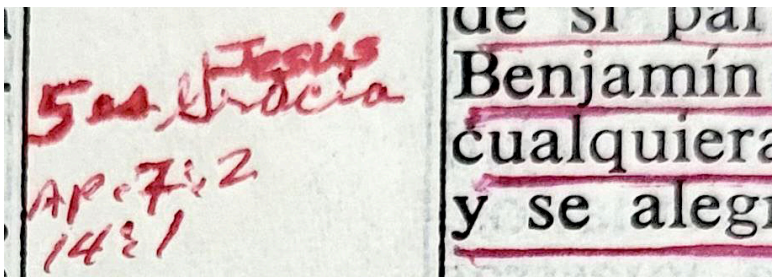 Jesús
5 es Gracia
Ap. 7:2
14:1
de sí par
Benjamín
cualquiera
y se alegr